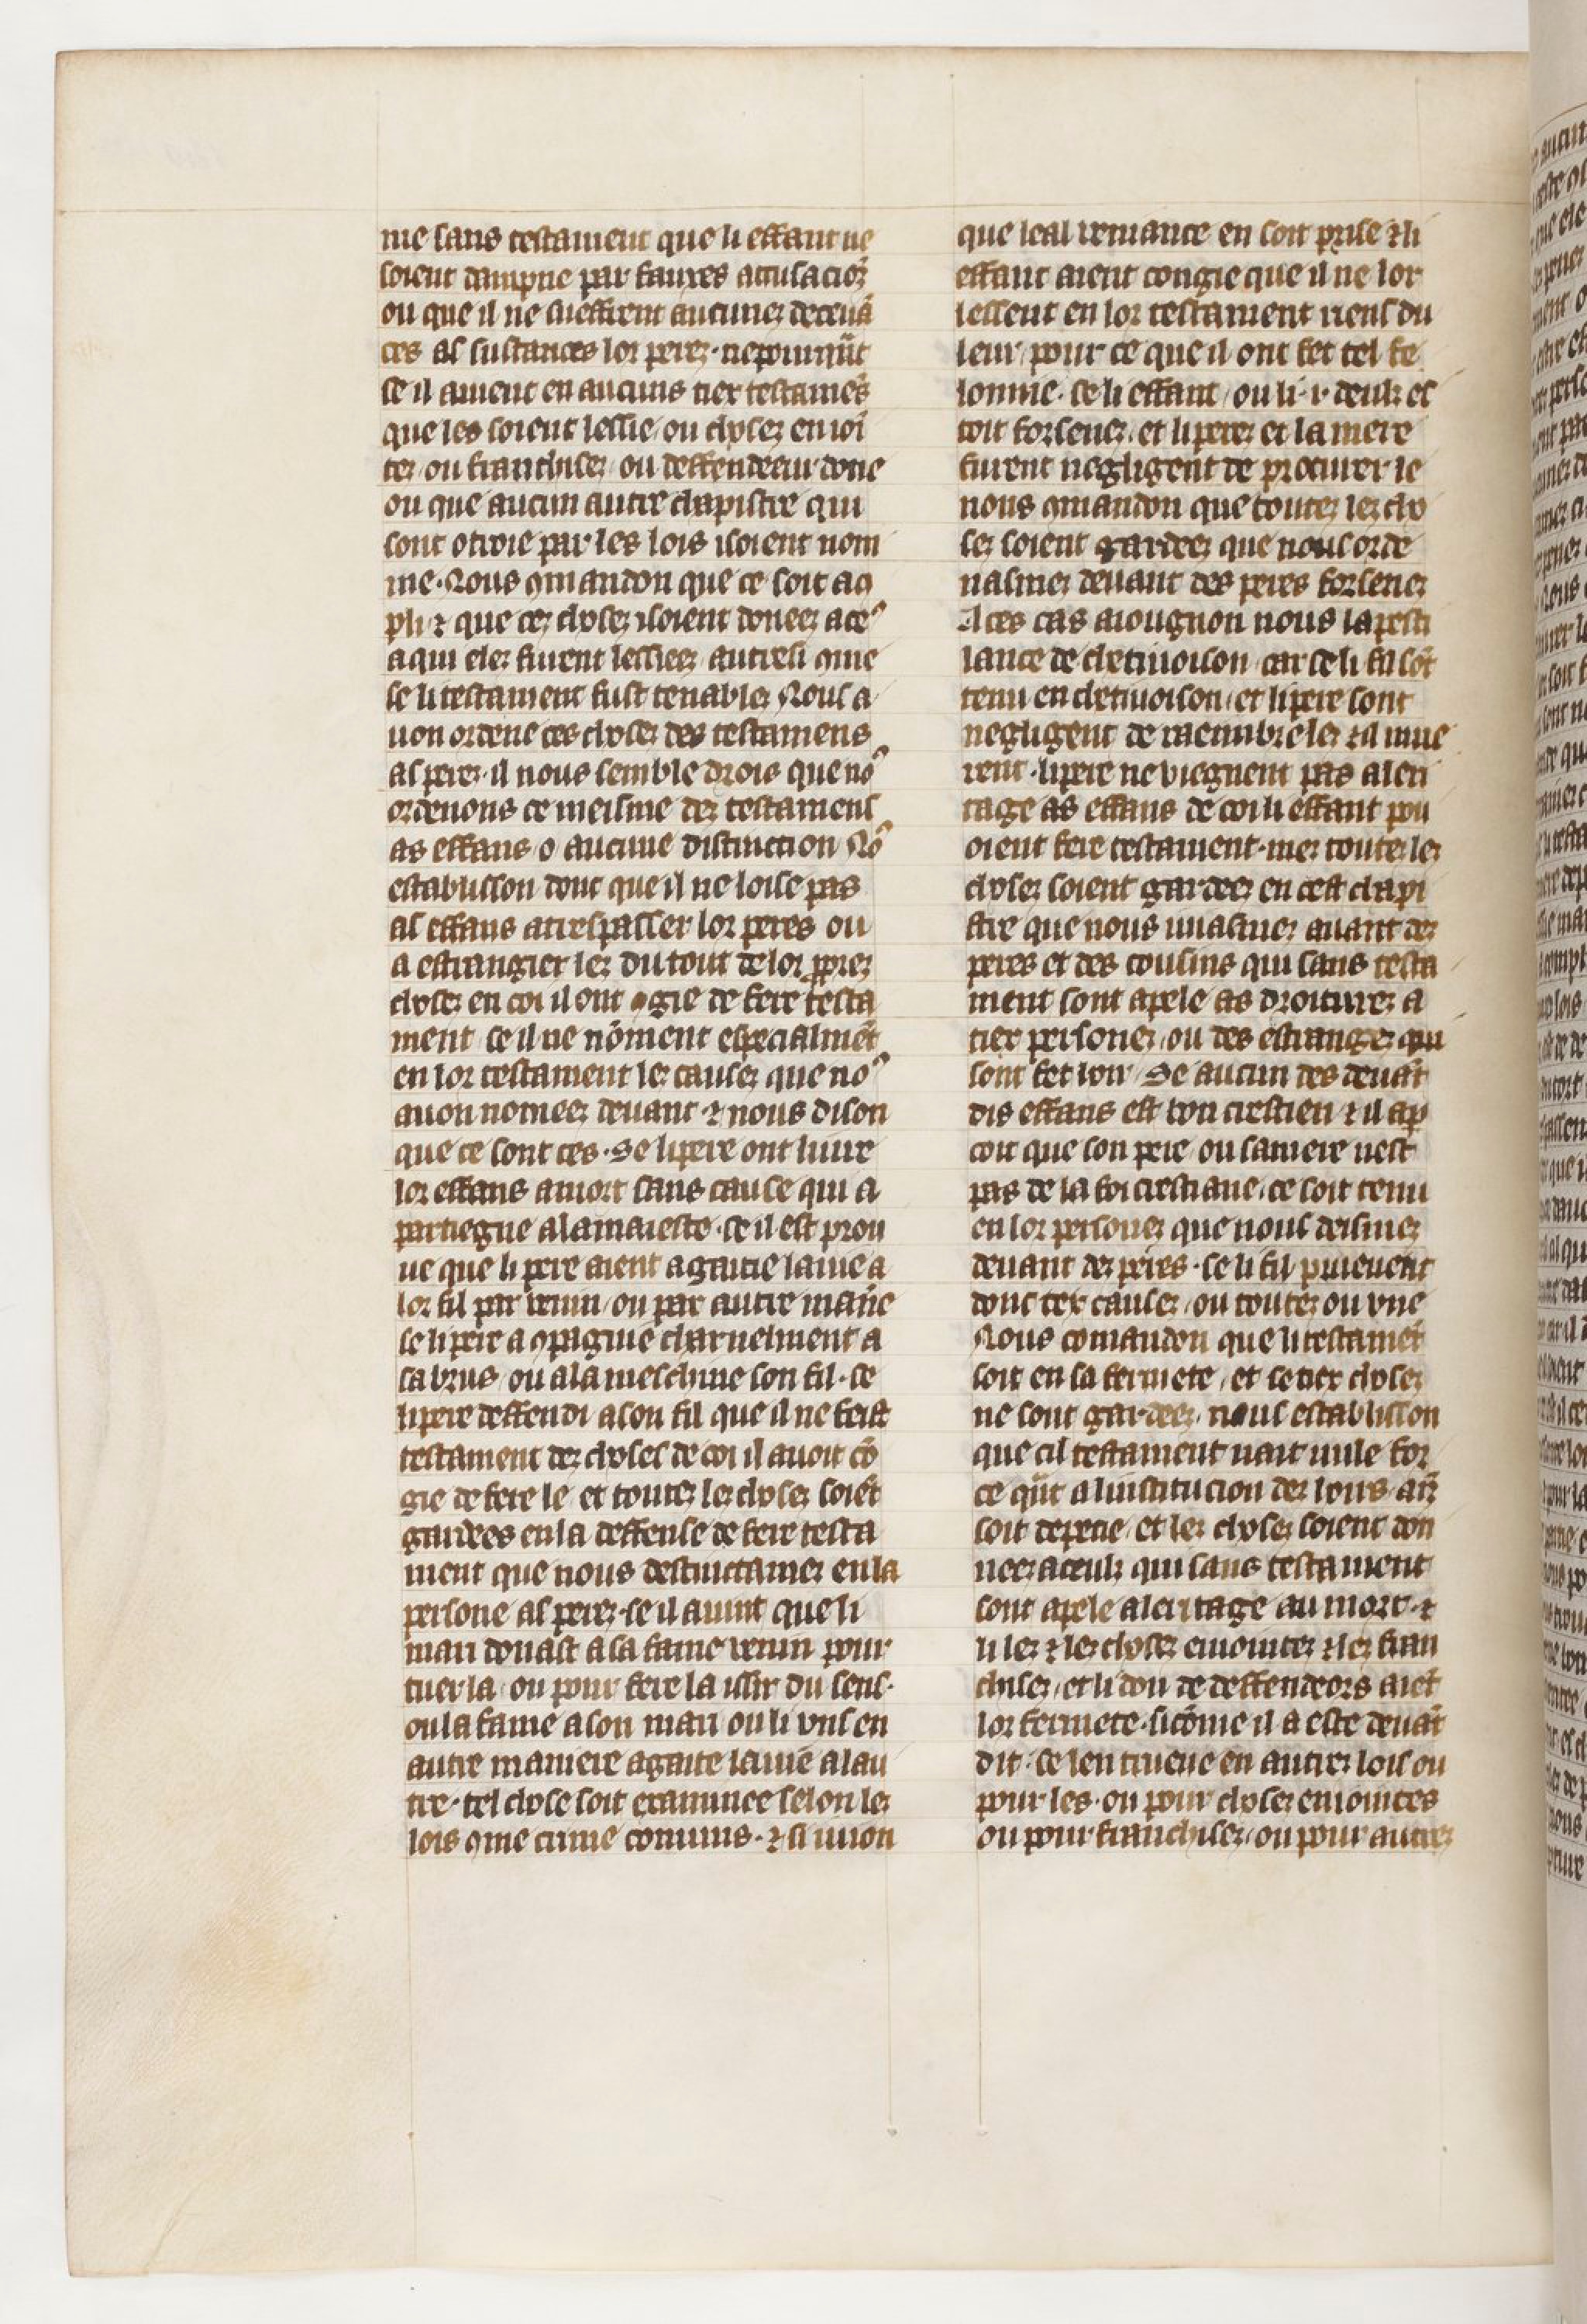 me sans testament que li effant ne
soient dampne par fauxes accusaciõz
ou que il ne sueffrent aucunez deceuā
ces as sustances lor perez · nepourqũt
se il auient en aucuns tiex testamēs
que les soient lessie / ou chosez en ioī
tez / ou franchisez / ou deffendeeur done
ou que aucun autre chapistre qui
sont otroie par les lois i soient nom
me · Nous ꝯmandon que ce soit aꝯ
pli ⁊ que cez chosez i soient doneez a ceꝰ
a qui elez furent lessieez / autresi ꝯme
se li testament fust tenablez Nous a
uon ordene ces chosez des testamens
as perez · il nous semble drois que noꝰ
ordenons ce meisme dez testamens
as effans / o aucune distinction Noꝰ
establisson donc que il ne loise pas
as effans a trespasser lor peres ou
a estrangier lez du tout de lor ꝓprez
chosez en coi il ont ꝯgie de fere testa
ment / se il ne nōment especialmēt
en lor testament lez causez que noꝰ
auon nomeez deuant · ⁊ nous dison
que ce sont ces · Se li pere ont liure
lor effans a mort sans cause qui a
partiegne a la maieste · se il est prou
ue que li pere aient agaitie la uie a
lor fil par venin / ou par autre maniē
se li pere a ꝯpaignie charnelment a
sa brus / ou a la meschine son fil · se
li pere deffendi a son fil que il ne feist
testament dez choses de coi il auoit cō
gie de fere le / et toutez lez chosez soiēt
gardees en la deffense de fere testa
ment que nous destinctamez en la
persone as perez · se il auint que li
mari donast a sa fame venin pour
tuer la / ou pour fere la issir du sens ·
ou la fame a son mari ou li vns en
autre maniere agaite la uie a lau
tre · tel chose soit examinee selon lez
lois ꝯme crime communs · ⁊ si uuon
que leal veniance en soit prise ⁊ li
effant aient congie que il ne lor
lessent en lor testament riens du
leur / pour ce que il ont fet tel fe
lonnie · se li effant / ou li · i · deulz es
toit forsenez / et li perez et la mere
furent negligent de procurer le
nous ꝯmandon que toutez lez cho
sez soient gardeez que nous orde
nasmez deuant des peres forsenez
A ces cas aiougnon nous la pesti
lance de chetiuoison / car se li fil sōt
tenu en chetiuoison / et li pere sont
negligent de raembre lez ⁊ il mue
rent · li pere ne viegnent pas a leri
tage as effans de coi li effant pou
oient fere testament · mez toutez lez
chosez soient gardeez en cest chapi
stre que nous
peres et des cousins qui sans testa
ment sont apele as droiturez a
tiex personez / ou des estrangez qui
sont fet loir / Se aucun des deuāt
dis effans est bon crestien ⁊ il ap
coit que son pere / ou sa mere nest
pas de la foi crestiane / ce soit tenu
en lor personez que nous deismez
deuant dez peres · se li fil pruieuent
donc tex causez / ou toutez ou vne
Nous comandon que li testamēt
soit en sa fermete / et se tiex chosez
ne sont gardeez / nous establisson
que cil testament nait nule for
ce qũt a linstitucion dez loirs
soit depecie / et lez chosez soient don
neez a ceulz qui sans testament
sont apele a leritage au mort · ⁊
li lez ⁊ lez chosez eniointez ⁊ lez fran
chisez / et li don de deffendeors aiēt
lor fermete · si cōme il a este deuāt
dit · se len trueue en autrez lois ou
pour les · ou pour chosez eniointes
ou pour franchisez / ou pour autrez